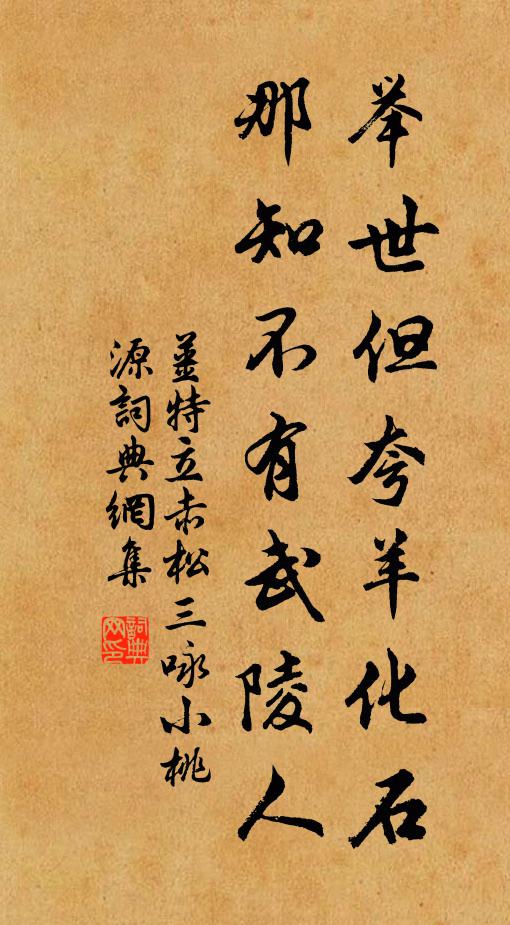 举世但夸羊化石
那知不有武陵人
薑特立赤松三咏小桃
源詞典網集
詞典网印